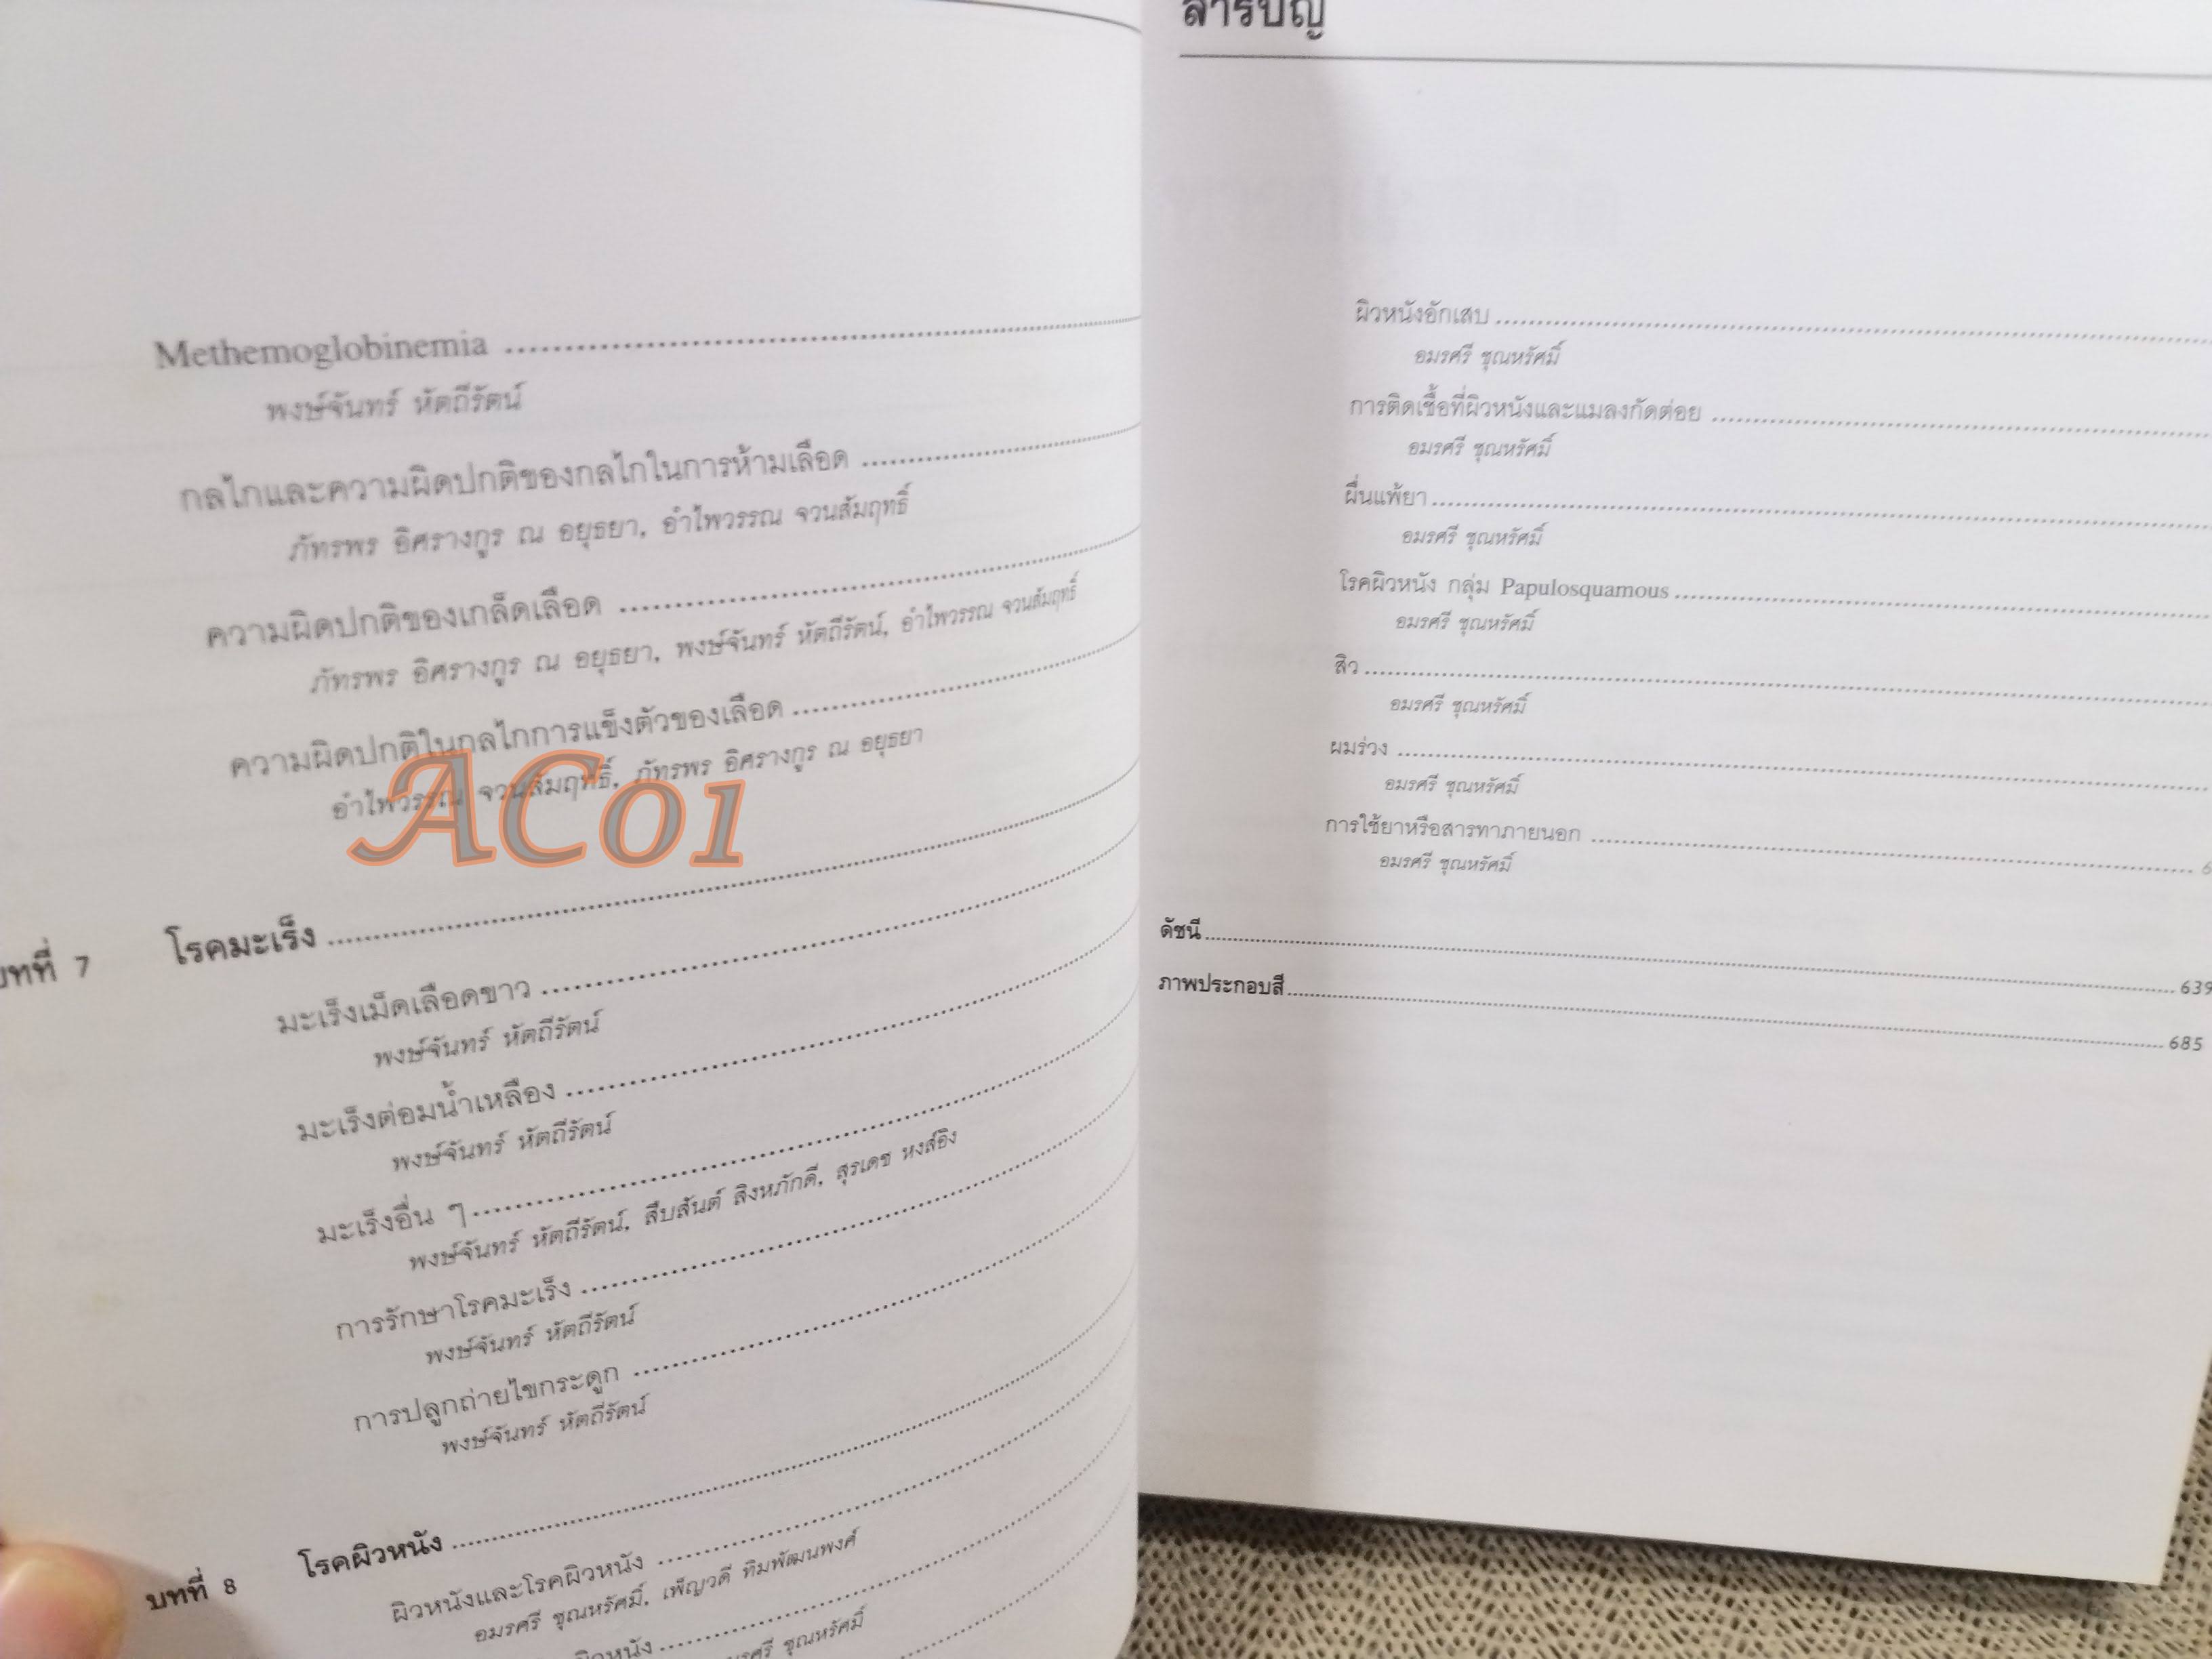 Methemoglobinemia
พงษ์จันทร์ หัตถีรัตน์
กลไกและความผิดปกติของกลไกในการห้ามเลือด
ภัทรพร อิศรางกูร ณ อยุธยา, อำไพวรรณ จวนสัมฤทธิ์
ความผิดปกติของเกล็ดเลือด
ภัทรพร อิศรางกูร ณ อยุธยา, พงษ์จันทร์ หัตถีรัตน์, อำไพวรรณ จวนสัมฤทธิ์
ความผิดปกติในกลไกการแข็งตัวของเลือด
อำไพวรรณ จวนสัมฤทธิ์, ภัทรพร อิศรางกูร ณ อยุธยา
ACo1
บทที่ 7 โรคมะเร็ง
มะเร็งเม็ดเลือดขาว
พงษ์จันทร์ หัตถีรัตน์
มะเร็งต่อมน้ำเหลือง
พงษ์จันทร์ หัตถีรัตน์
มะเร็งอื่น ๆ
พงษ์จันทร์ หัตถีรัตน์, สืบสันต์ สิงหภักดี, สุรเดช หงส์อิง
การรักษาโรคมะเร็ง
พงษ์จันทร์ หัตถีรัตน์
การปลูกถ่ายไขกระดูก
พงษ์จันทร์ หัตถีรัตน์
บทที่ 8 โรคผิวหนัง
ผิวหนังและโรคผิวหนัง
อมรศรี ชุณหรัศมิ์, เพ็ญวดี ทิมพัฒนพงศ์
ผิวหนัง
ชุณหรัศมิ์
สารบัญ
ผิวหนังอักเสบ
อมรศรี ชุณหรัศมิ์
การติดเชื้อที่ผิวหนังและแมลงกัดต่อย
อมรศรี ชุณหรัศมิ์
ผื่นแพ้ยา
อมรศรี ชุณหรัศมิ์
โรคผิวหนัง กลุ่ม Papulosquamous
อมรศรี ชุณหรัศมิ์
สิว
อมรศรี ชุณหรัศมิ์
ผมร่วง
อมรศรี ชุณหรัศมิ์
การใช้ยาหรือสารทาภายนอก
อมรศรี ชุณหรัศมิ์
ดัชนี 639
ภาพประกอบสี 685